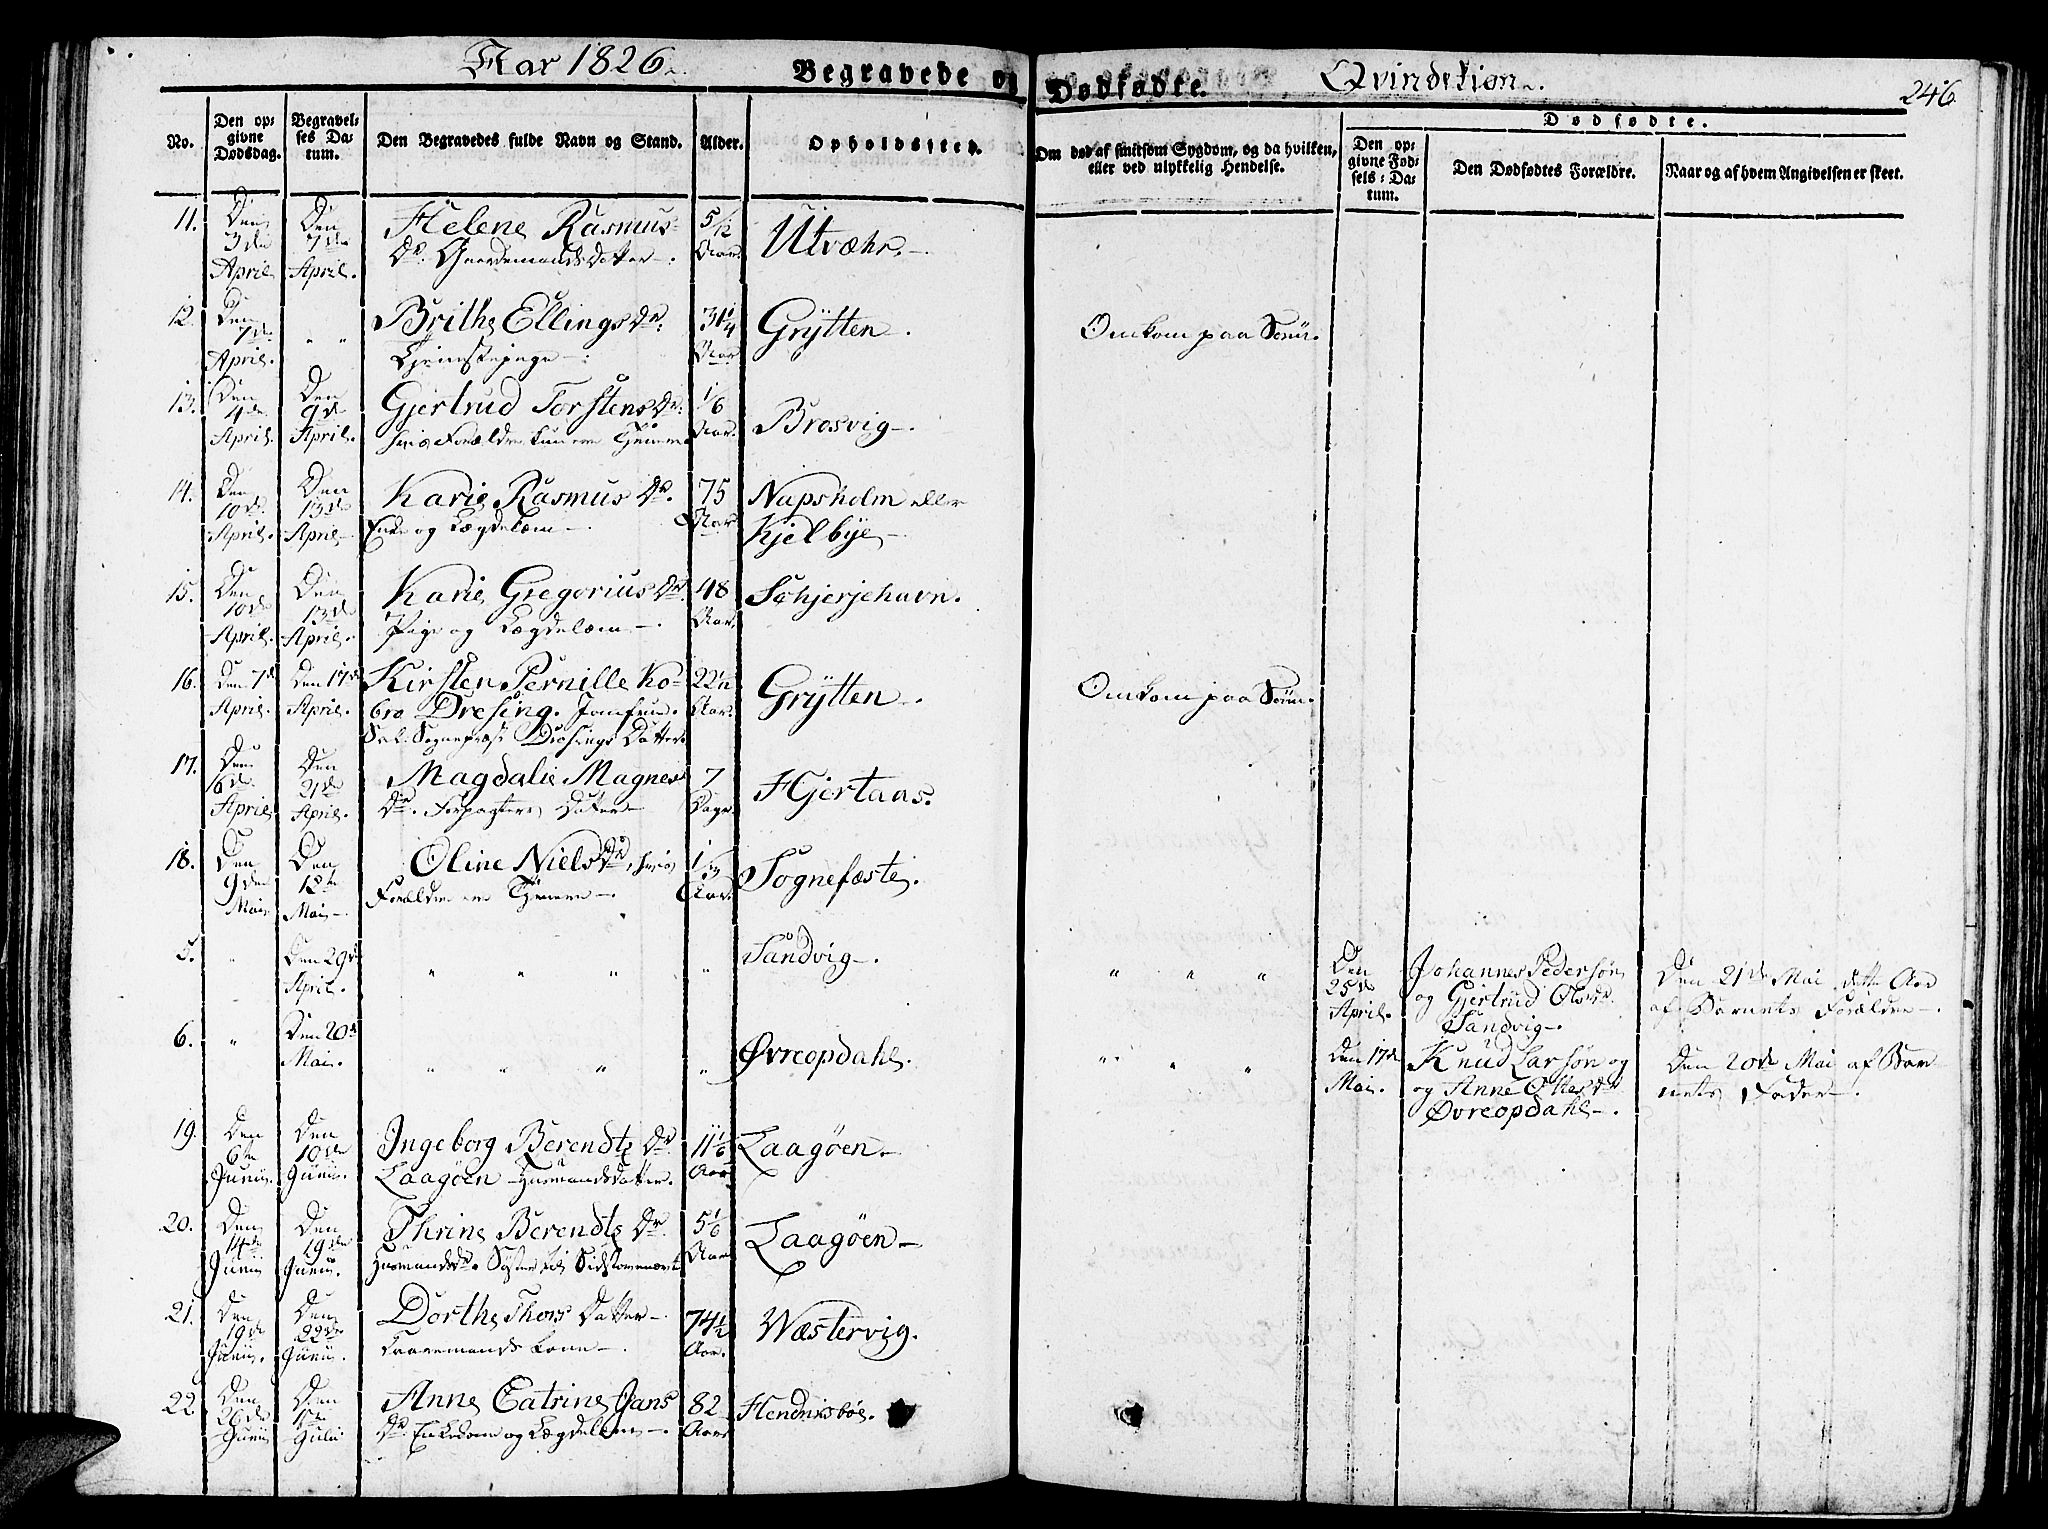 Aar 1826. Begravede og Dødfødte. Qvindekiøn. 246
No. Den opgivne Dødsdag. Begravelses Datum. Den Begravedes fulde Navn og Stand. Alder. Opholdssted. Om død af smitsom Sygdom, og da hvilken, eller ved ulykkelig Hendelse. Dødfødte.
Den opgivne Fødsels-Datum. Den Dødfødtes Forældre. Naar og af hvem Angivelsen er skeet.
11. Den Den Helene Rasmus- 5/12 Utvæhr.
3de 7de Dr. Gaardemands Datter Aar.
April April.
12. Den Brithe Ellings Dr. 31 1/4 Grÿtten. Omkom paa Søen.
7de " " Aar
April. Tjenistepige
13. Den Den Gjertrud Torstens Dr. 1/6 Brosvig.
4de 9de hvis Forældre Aar.
April. April.
14. Den Den Karie Rasmus Dr. 75 Napsholm eller
10de 13de Enke og Lægdelem Aar Kjelbye
April. April
15. Den Den Karie Gregorius Dr. 48 Schjerjehavn.
10de 13de Pige og Lægdelem Aar.
April. April.
16. Den 7de Den 17de Kirsten Pernille Ko- 22 Grÿtten. Omkom paa Søen.
April. April. bro Dresing. Jomfrue. Aar.
Sal: Sognepræst Dresings Datter
17. Den Den Magdalie Magnes 7 Hjertaas.
6de 21de Dr. Forpagters Datter Dage
April April.
18. Den Den Oline Niels Dr, hvis 1/3 Sognefæste.
9de 12te Forældre ere Tjenere Aar.
Mai Mai
5. " Den 29de " " " " Sandvig. " " " Den Johannes Pedersøn Den 21de Mai dette Aar
April. 25de og Gjertrud Ols Dr. af Barnets Forældre.
April. Sandvig.
6. " Den 20de " " " " Øvreopdahl. " " " Den 17de Knud Larsøn og Den 20de Mai af Bar-
Mai. Mai. og Anne Dr. nets Fader.
Øvreopdahl.
19. Den Den Ingeborg Berendts Dr. 11 1/6 Laagøen
6te 10de Laagøen Husmandsdatter. Aar
Junii. Junii.
20. Den Den Thrine Berendts Dr. 5 1/6 Laagøen
14de 19de Husmandsdr. Søster til Sidstnevnte Aar
Junii Junii.
21. Den Den Dorthe Thors Datter 74 1/2 Wæstervig.
19de 22de Kone Aar.
Junii. Junii.
22. Den Den Anne Catrine Jans 82 Hendriksbøe.
26de 1te Dr. Enkekone og Lægdelem Aar
Junii Julii